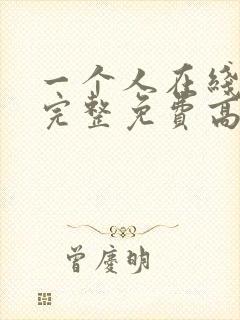 一个人在线
完整免费高
曾庆明